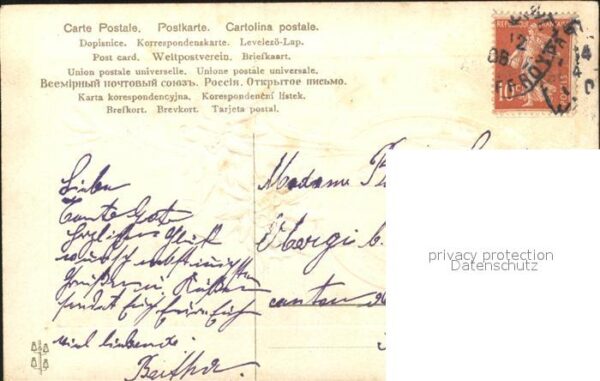 Carte Postale. Postkarte. Cartolina postale.
Dopisnice. Korrespondenskarte. Levelező-Lap.
Post card. Weltpostverein. Briefkaart.
Union postale universelle. Unione postale universale.
Всемірный почтовый союзъ. Россія. Открытое письмо.
Karta korespondencyjna. Korespondenční lístek.
Brefkort. Brevkort. Tarjeta postal.
10
12
08
Liebe
Tante Gote
Herzlichen Glück
wunsch nebst
Grüßen u. Küßen
sendet Euch Eure Euch
viel liebende.
Bertha.
Madame
canton de
privacy protection
Datenschutz